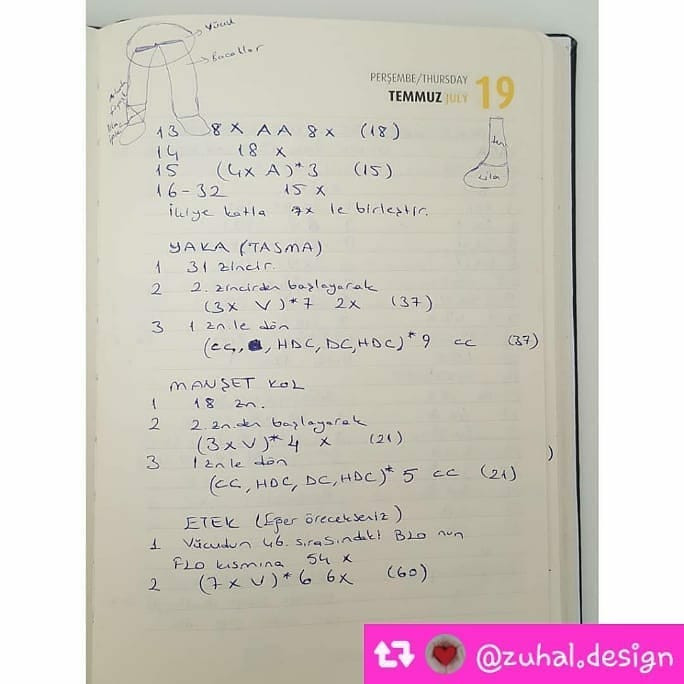 Vücut
Bacaklar
PERŞEMBE/THURSDAY
TEMMUZ JULY 19
ten
13 8x AA 8x (18)
14 18 x
15 (4x A)*3 (15)
16-32 15 x
İkiye katla 7x le birleştir.
YAKA (TASMA)
1 31 zincir.
2 2. zincirden başlayarak
(3x V)*7 2x (37)
3 1 zn.le dön
(CC, HDC, DC, HDC)*9 CC (37)
MANŞET KOL
1 18 zn.
2 2. zn.den başlayarak
(3x V)*4 x (21)
3 1 zn le dön
(CC, HDC, DC, HDC)* 5 CC (21)
ETEK (Eğer örecekseniz)
1 Vücudun 46. sırasındaki BLO nun
FLO kısmına 54 x
2 (7x V)*6 6x (60)
@zuhal.design